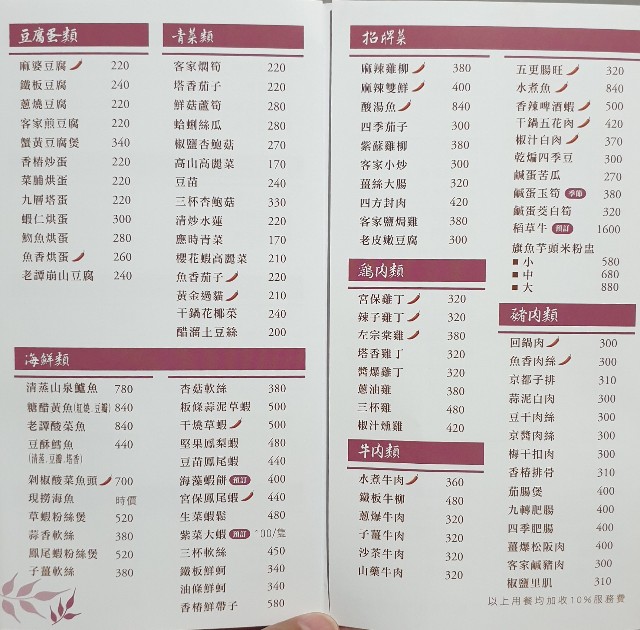 豆腐蛋類
麻婆豆腐 220
鐵板豆腐 240
蔥燒豆腐 220
客家煎豆腐 220
蟹黃豆腐煲 340
香椿炒蛋 220
菜脯烘蛋 220
九層塔蛋 220
蝦仁烘蛋 300
魩魚烘蛋 280
魚香烘蛋 260
老譚崩山豆腐 240
青菜類
客家燜筍 220
塔香茄子 220
鮮菇蘆筍 280
蛤蜊絲瓜 280
椒鹽杏鮑菇 270
高山高麗菜 170
豆苗 240
三杯杏鮑菇 330
清炒水蓮 220
應時青菜 170
櫻花蝦高麗菜 210
魚香茄子 220
黃金過貓 210
干鍋花椰菜 240
醋溜土豆絲 200
海鮮類
清蒸山泉鱸魚 780
糖醋黃魚(紅燒.豆瓣) 840
老譚酸菜魚 840
豆酥鱈魚 440
(清蒸.豆瓣.塔香)
剁椒酸菜魚頭 700
現撈海魚 時價
草蝦粉絲煲 520
蒜香軟絲 380
鳳尾蝦粉絲煲 520
子薑軟絲 380
杏菇軟絲 380
板條蒜泥草蝦 500
干燒草蝦 500
堅果鳳梨蝦 480
豆苗鳳尾蝦 440
海藻蝦餅 預訂 400
宮保鳳尾蝦 440
生菜蝦鬆 480
紫菜大蝦 預訂 100/隻
三杯軟絲 450
鐵板鮮蚵 340
油條鮮蚵 340
香椿鮮帶子 580
招牌菜
麻辣雞柳 380
麻辣雙鮮 400
酸湯魚 840
四季茄子 300
紫蘇雞柳 380
客家小炒 300
薑絲大腸 320
四方封肉 420
客家鹽焗雞 380
老皮嫩豆腐 300
五更腸旺 320
水煮魚 840
香辣啤酒蝦 500
干鍋五花肉 420
椒汁白肉 370
乾煸四季豆 300
鹹蛋苦瓜 270
鹹蛋玉筍 季節 380
鹹蛋茭白筍 320
稻草牛 預訂 1600
旗魚芋頭米粉盅
■ 小 580
■ 中 680
■ 大 880
鷄肉類
宮保雞丁 320
辣子雞丁 320
左宗棠雞 380
塔香雞丁 320
醬爆雞丁 320
蔥油雞 380
三杯雞 480
椒汁燻雞 420
牛肉類
水煮牛肉 360
鐵板牛柳 480
蔥爆牛肉 320
子薑牛肉 320
沙茶牛肉 320
山藥牛肉 320
豬肉類
回鍋肉 300
魚香肉絲 300
京都子排 310
蒜泥白肉 300
豆干肉絲 300
京醬肉絲 300
梅干扣肉 300
香椿排骨 310
茄腸煲 400
九轉肥腸 400
四季肥腸 400
薑爆松阪肉 400
客家鹹豬肉 300
椒鹽里肌 310
以上用餐均加收10%服務費